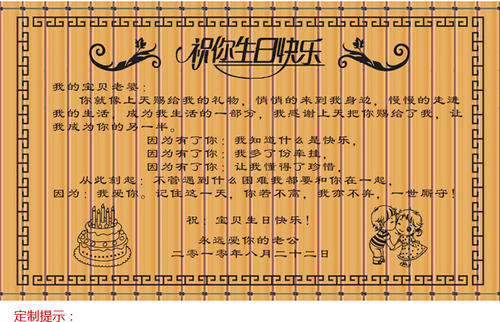 祝你生日快乐
我的宝贝老婆：
你就像上天赐给我的礼物，悄悄的来到我身边，慢慢的走进
我的生活，成为我生活的一部分，我感谢上天把你赐给了我，让
我成为你的另一半。
因为有了你：我知道什么是快乐，
因为有了你：我多了份牵挂，
因为有了你：让我懂得了珍惜，
从此刻起：不管遇到什么困难我都要和你在一起，
因为：我爱你。记住这一天，你若不离，我亦不弃，一世厮守！
祝：宝贝生日快乐！
永远爱你的老公
二零一零年八月二十二日
定制提示：